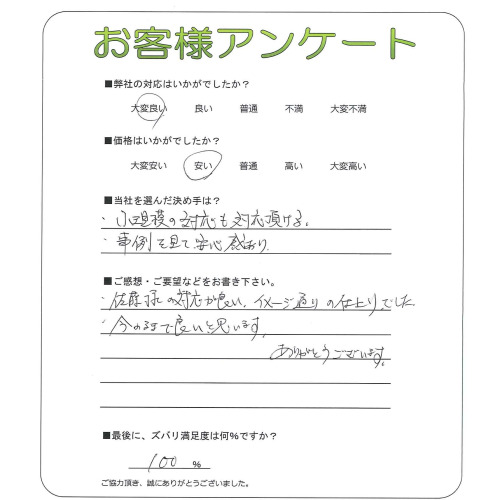 お客様アンケート
■弊社の対応はいかがでしたか？
大変良い 良い 普通 不満 大変不満
■価格はいかがでしたか？
大変安い 安い 普通 高い 大変高い
■当社を選んだ決め手は？
・小規模の対応も対応頂ける。
・事例を見て安心感あり
■ご感想・ご要望などをお書き下さい。
・佐藤様の対応が良い。イメージ通りの仕上りでした
・今のままで良いと思います。
ありがとうございます。
■最後に、ズバリ満足度は何％ですか？
100 ％
ご協力頂き、誠にありがとうございました。